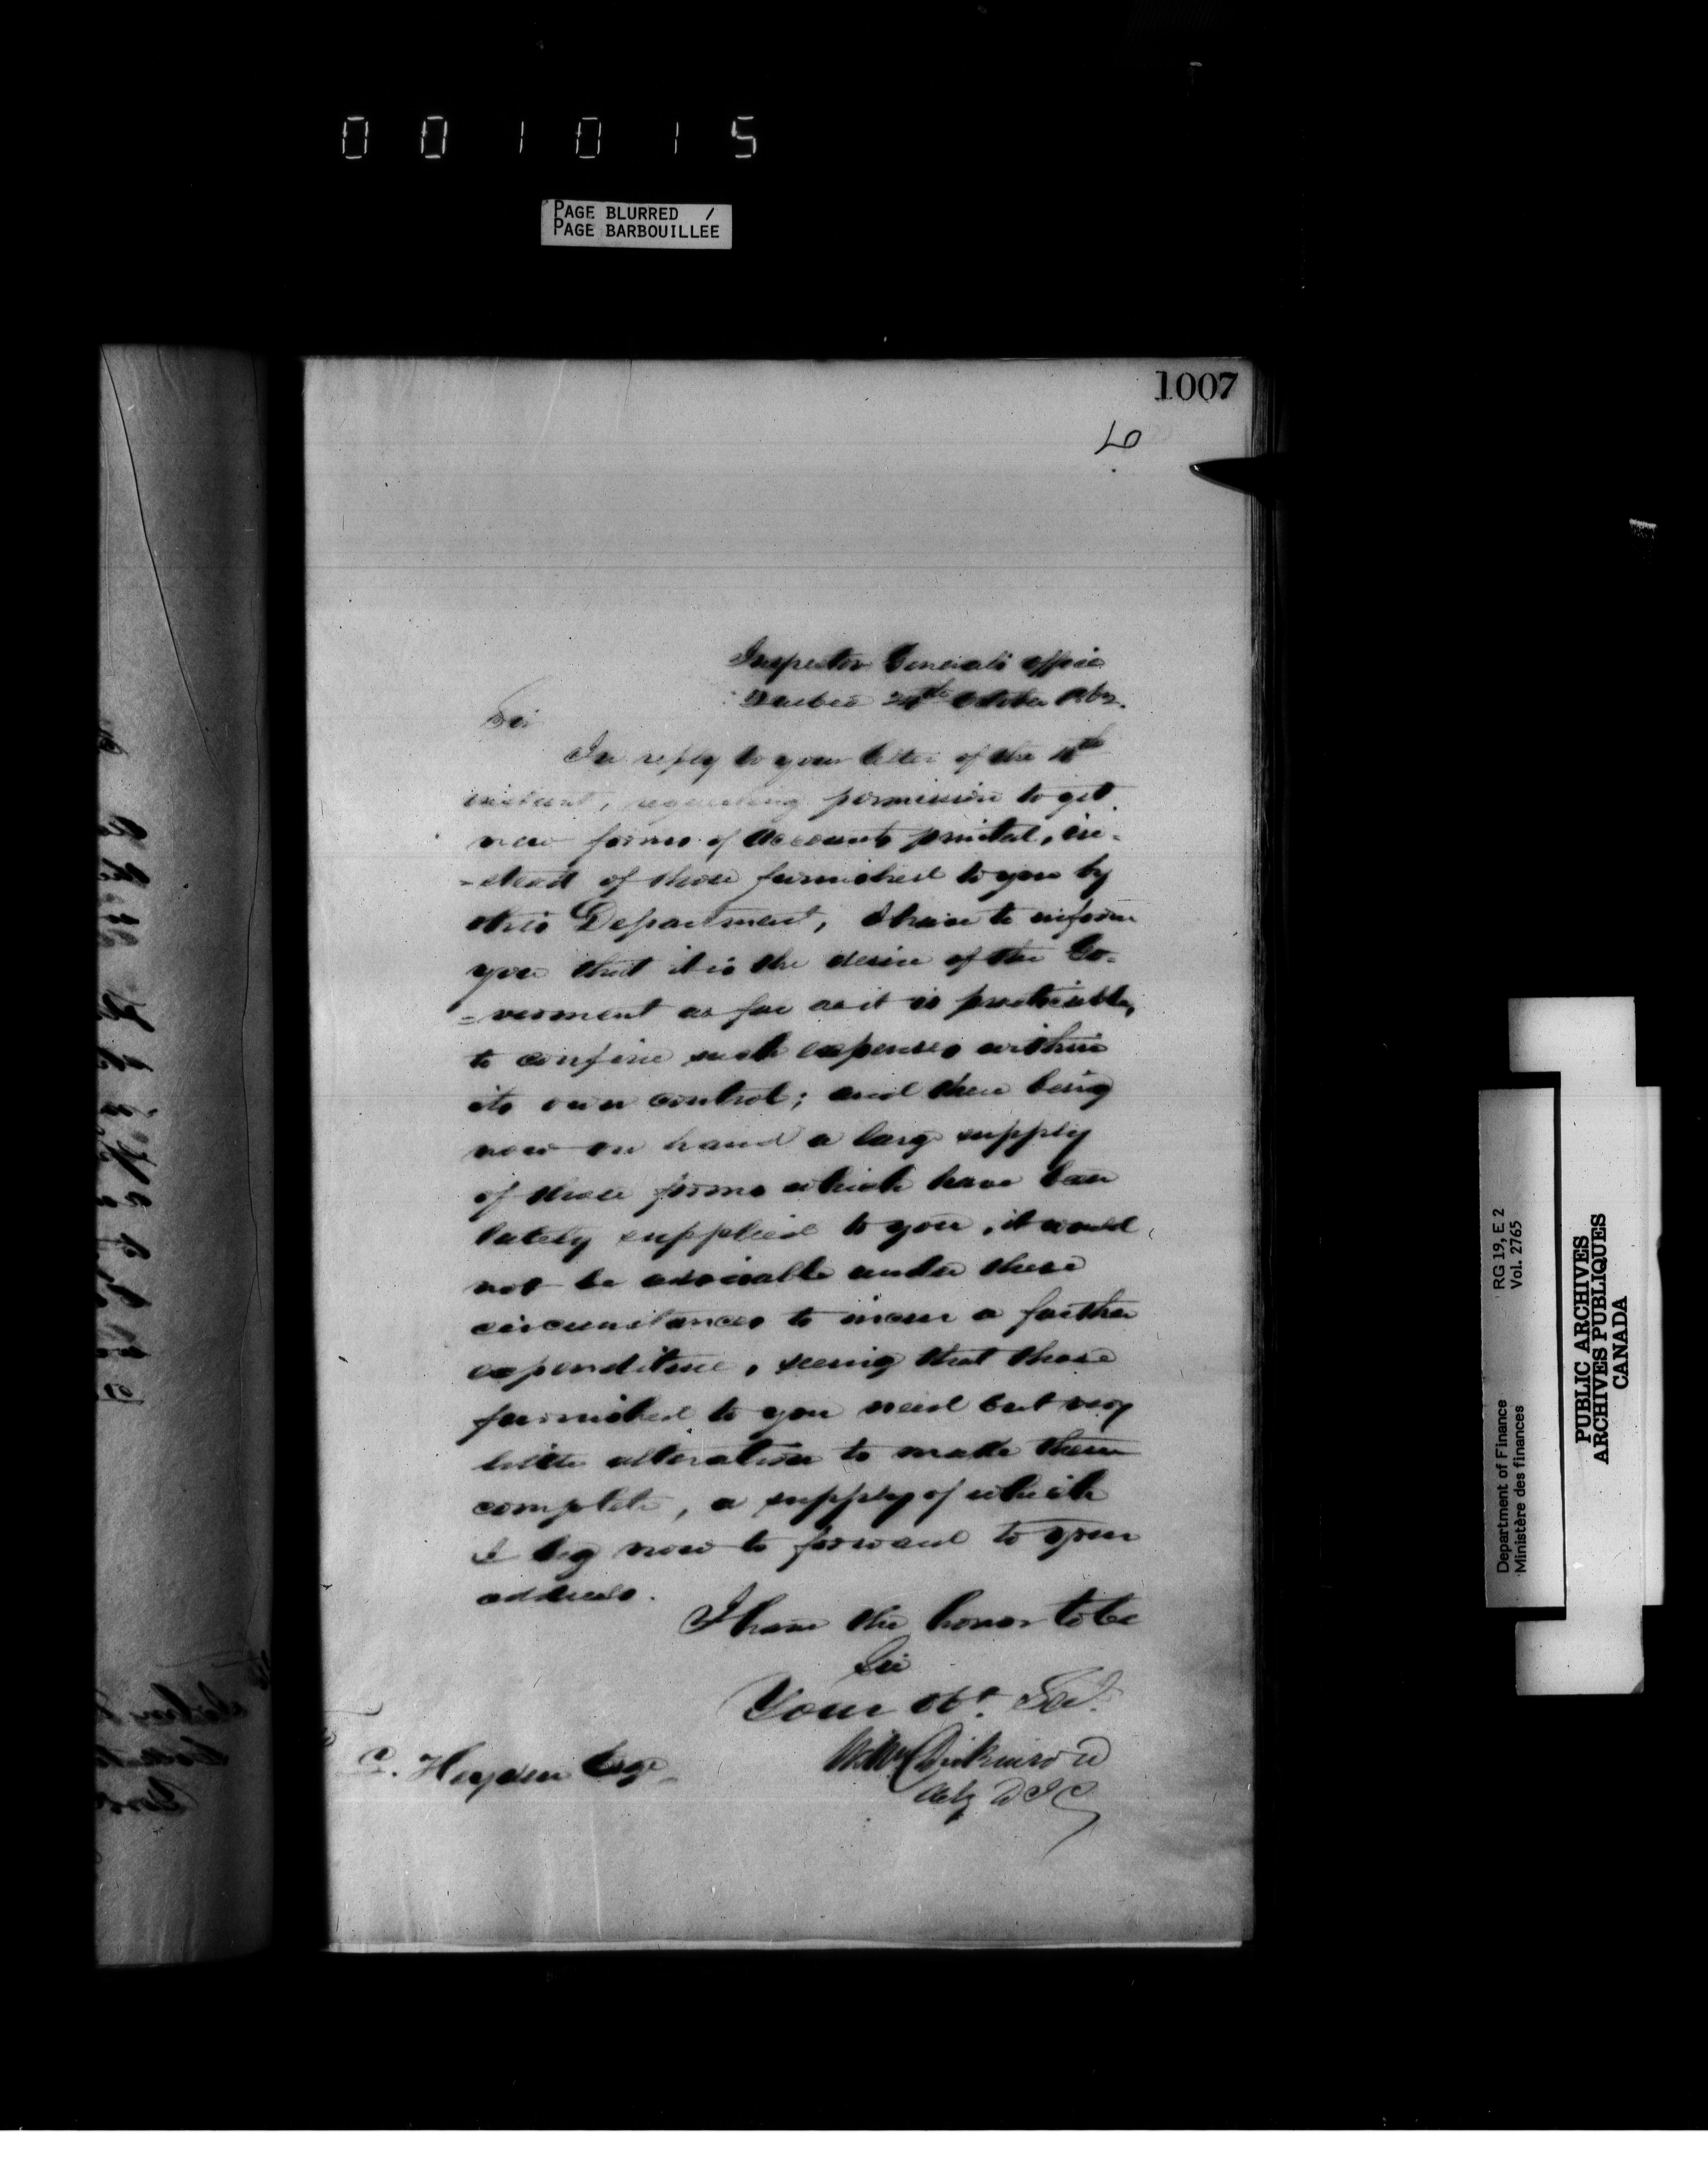 001015
PAGE BLURRED /
PAGE BARBOUILLEE
1007
Inspector Generals Office
Quebec October
Sir
In reply to your letter of the
instant, requesting permission to get
new forms of Accounts printed, in-
-stead of those furnished to you by
this Department, I have to inform
you that it is the desire of the Go-
=vernment as far as it is practicable,
to confine such expenses within
its own control; and there being
now on hand a large supply
of these forms which have been
lately supplied to you, it would
not be advisable under these
circumstances to incur a further
expenditure, seeing that those
furnished to you need but very
little alteration to make them
complete, a supply of which
I beg now to forward to your
address.
I have the honor to be
Sir
Your Obt. Servt.
Dickinson
Actg D I G
Hayden Esqr
Department of Finance RG 19, E 2
Ministère des finances Vol. 2765
PUBLIC ARCHIVES
ARCHIVES PUBLIQUES
CANADA